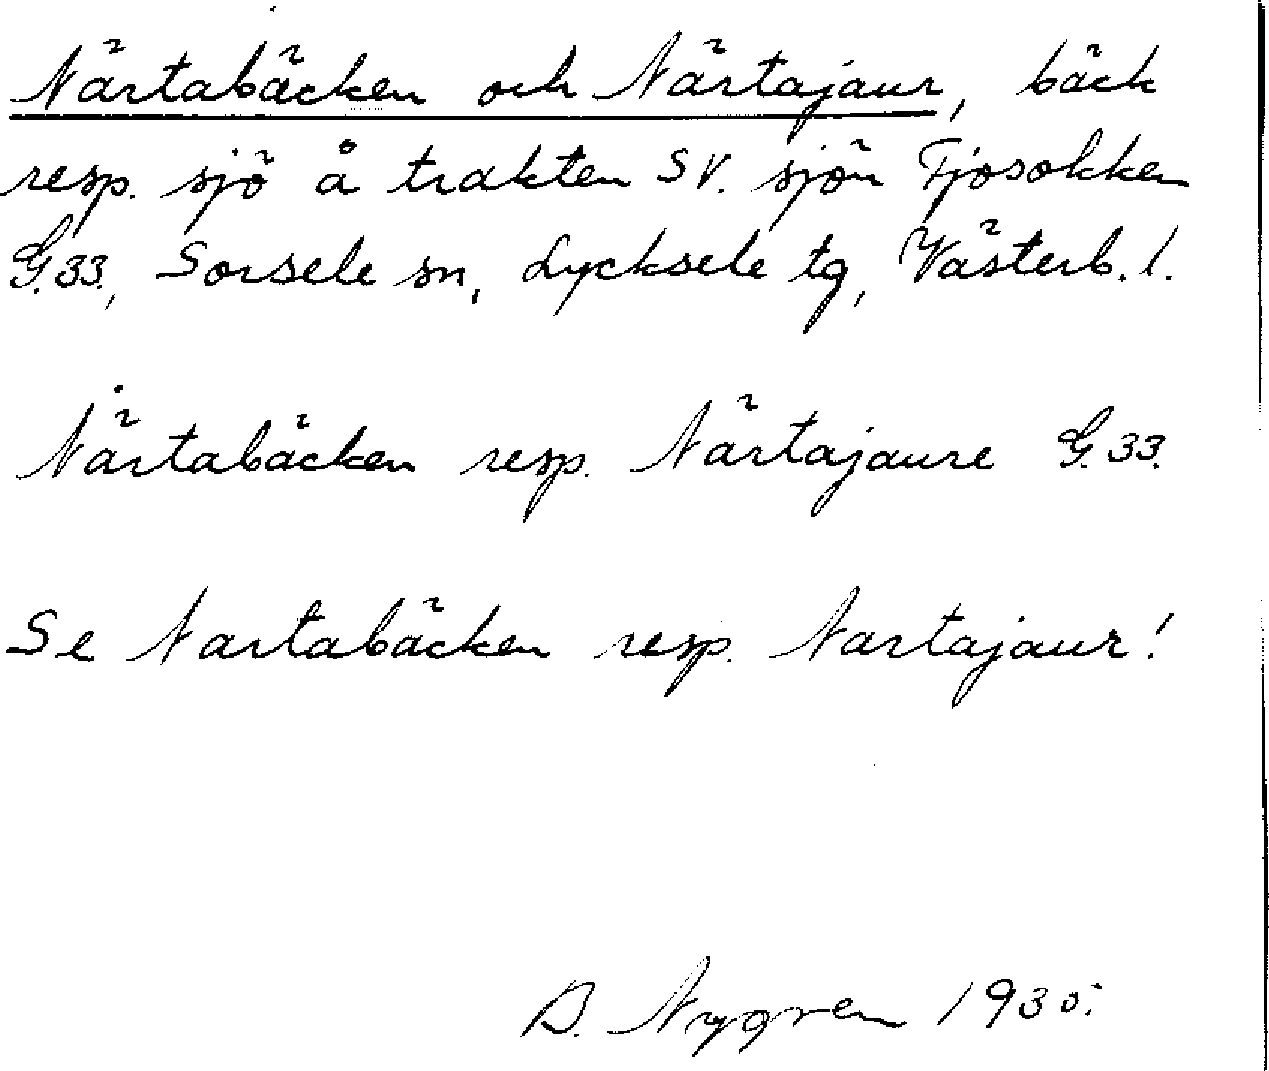 Närtabäcken och Närtajaur, bäck
resp. sjö å trakten SV. sjön Tjosokken
G.33., Sorsele sn, Lycksele tg, Västerb. l.
Närtabäcken resp. Närtajaure G.33.
Se Nartabäcken resp. Nartajaur!
Nygren 1935.